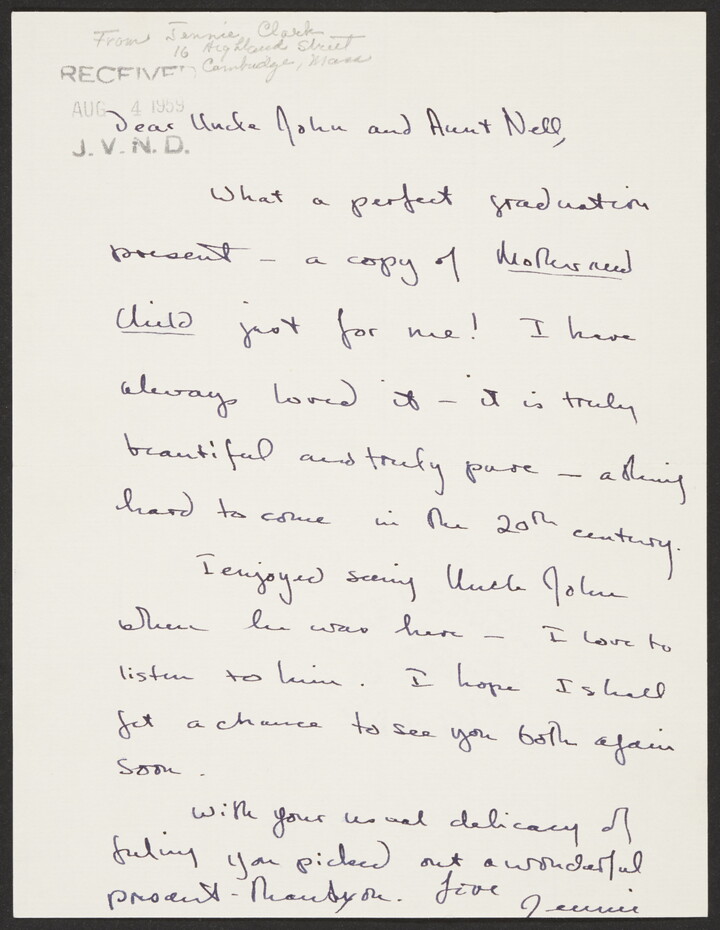 From Jennie Clark
16 Highland Street
Cambridge, Mass
RECEIVED
AUG 4 1959
J. V. N. D.
Dear Uncle John and Aunt Nell,
What a perfect graduation
present – a copy of Mother and
Child just for me! I have
always loved it – it is truly
beautiful and truly pure – a thing
hard to come in the 20th century.
I enjoyed seeing Uncle John
when he was here – I love to
listen to him. I hope I shall
get a chance to see you both again
soon.
With your usual delicacy of
feeling you picked out a wonderful
present – Thank you. Love
Jennie